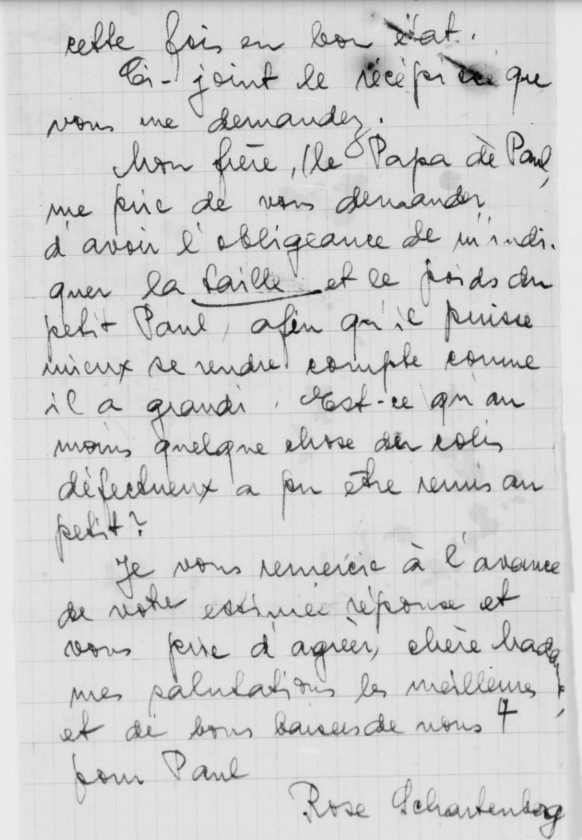 cette fois en bon état.
Ci-joint le récépissé que
vous me demandez.
Mon frère, (le Papa de Paul,
me prie de vous demander
d'avoir l'obligeance de m'indi-
quer la taille et le poids du
petit Paul, afin qu'il puisse
mieux se rendre compte comme
il a grandi. Est-ce qu'au
moins quelque chose du colis
défectueux a pu être remis au
petit?
Je vous remercie à l'avance
de votre estimée réponse et
vous prie d'agréer, chère Madame,
mes salutations les meilleures
et de bons baisers de nous 4
pour Paul
Rose Schartenberg